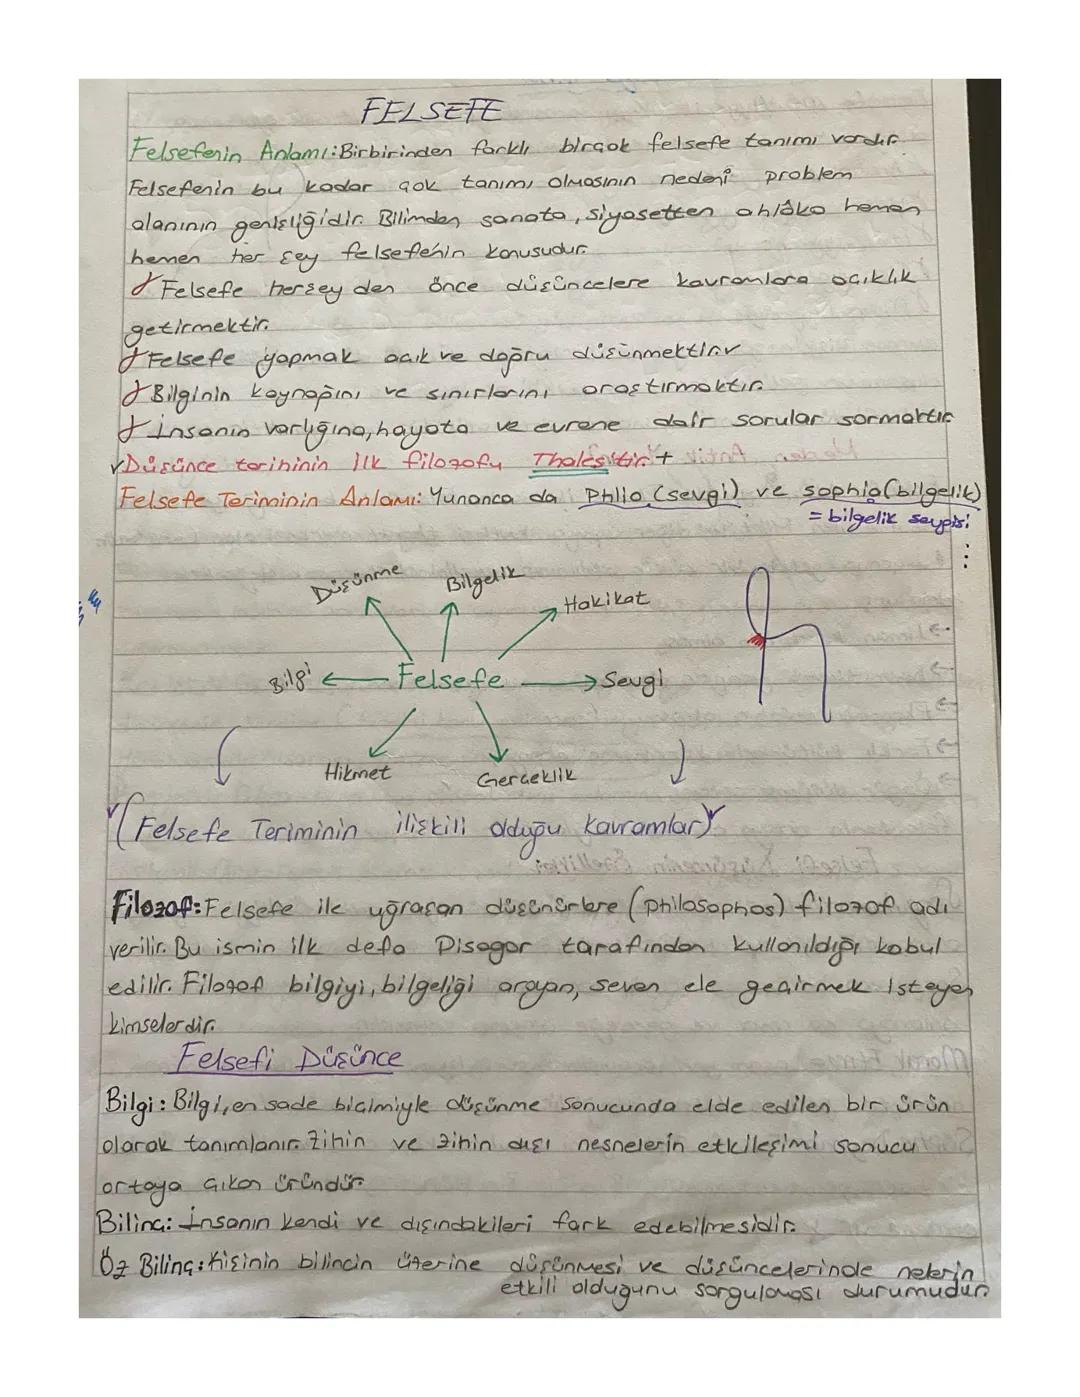 FELSEFE
Felsefenin Anlamı: Birbirinden farklı birçok felsefe tanımı vardır.
Felsefenin bu kadar çok tanımı olmasının nedeni problem
alanının genişliğidir. Bilimden sanata, siyasetten ahlâka hemen
hemen her şey felsefenin konusudur.
Felsefe herşeyden önce düşüncelere kavramlara açıklık
getirmektir.
Felsefe yapmak açık ve doğru düşünmektir
Bilginin kaynağını ve sınırlarını araştırmaktır.
İnsanın varlığına, hayata ve evrene dair sorular sormaktır.
Düşünce tarihinin ilk filozofu Thales'tir. +
Felsefe Teriminin Anlamı: Yunanca da Philo (sevgi) ve sophia (bilgelik)
= bilgelik sevgisi
Düşünme
Bilgelik
Hakikat
Bilgi
Felsefe
Sevgi
Hikmet
Gerçeklik
(Felsefe Teriminin ilişkili olduğu kavramlar)
Filozof: Felsefe ile uğraşan düşünürlere (philosophos) filozof adı
verilir. Bu ismin ilk defa Pisagor tarafından kullanıldığı kabul
edilir. Filozof bilgiyi, bilgeliği arayan, seven ele geçirmek isteyen
kimselerdir.
Felsefi Düşünce
Bilgi: Bilgi, en sade biçimiyle düşünme sonucunda elde edilen bir ürün
olarak tanımlanır. Zihin ve zihin dışı nesnelerin etkileşimi sonucu
ortaya çıkan üründür.
Bilinç: İnsanın kendi ve dışındakileri fark edebilmesidir.
Öz Bilinç: Kişinin bilincin üzerine düşünmesi ve düşüncelerinde nelerin
etkili olduğunu sorgulaması durumudur.